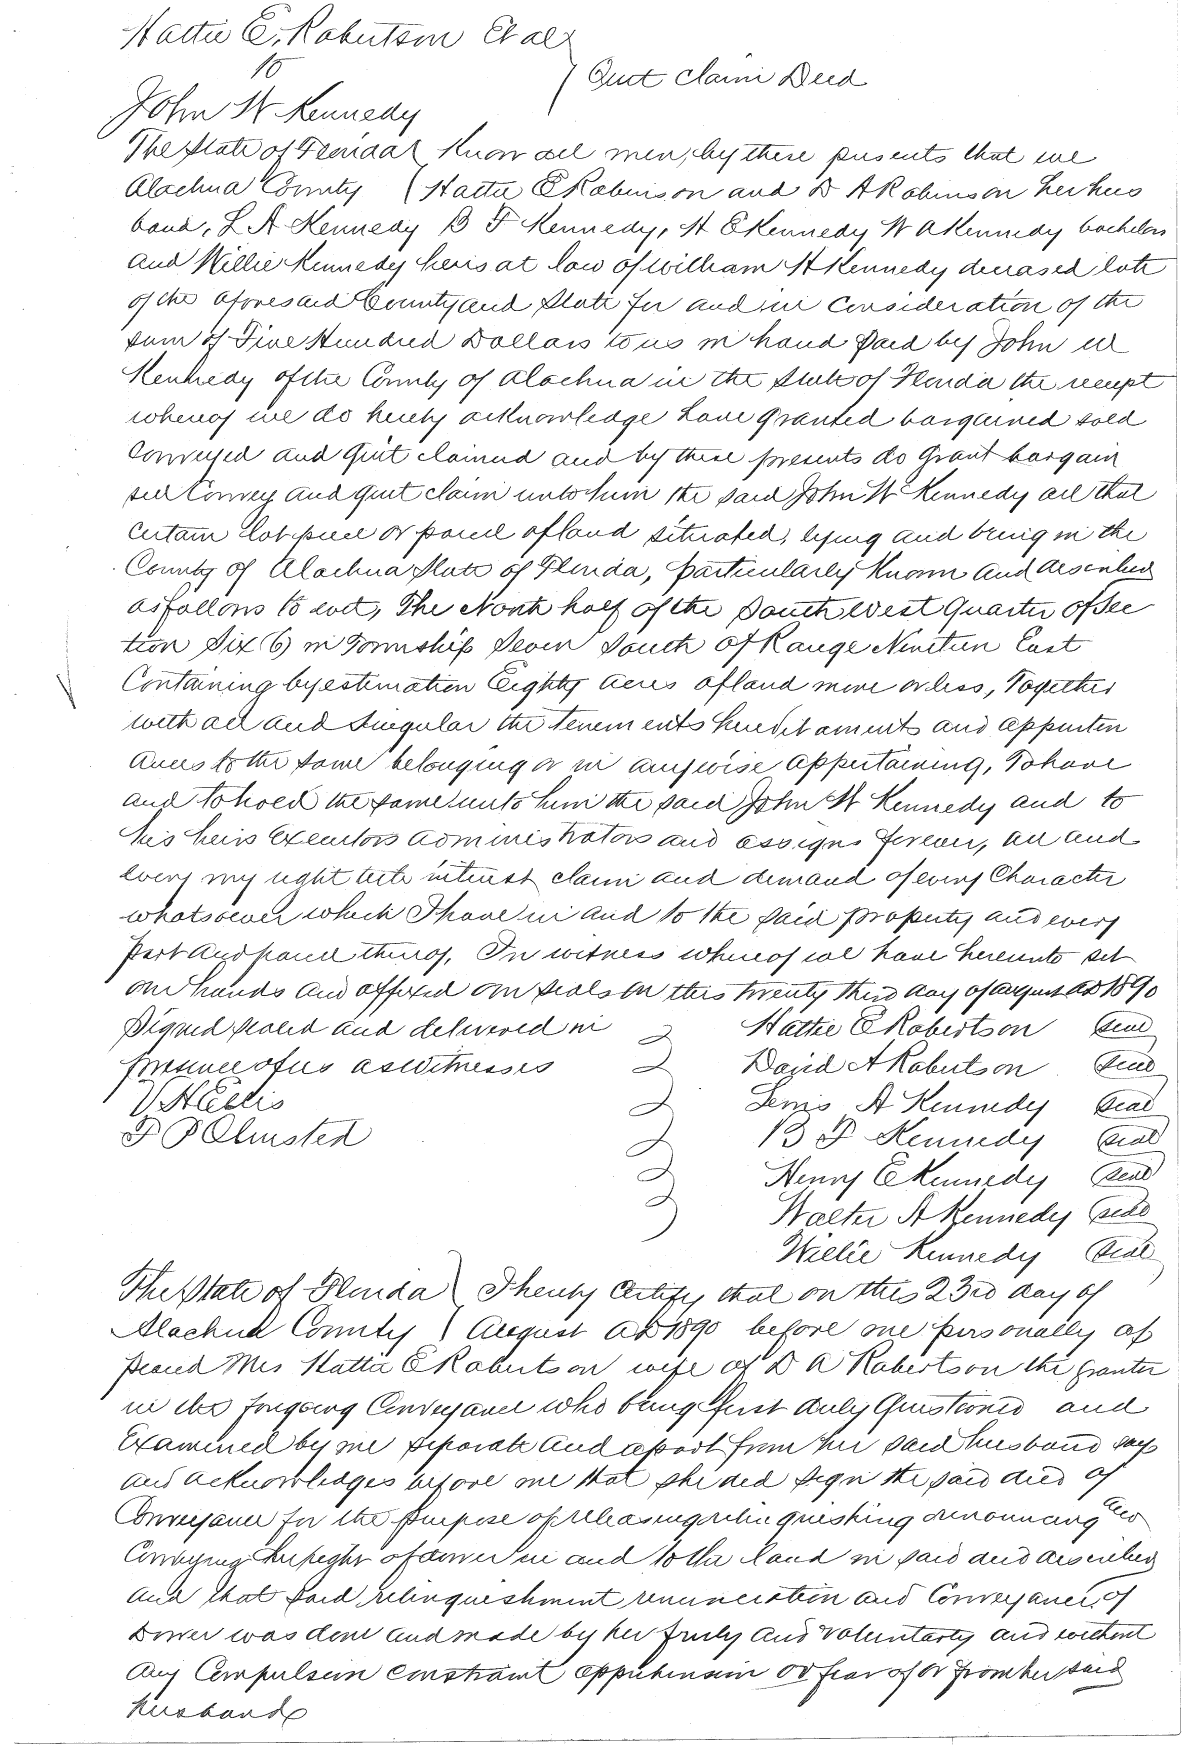 Hattie E. Robertson Et al
to
Quit Claim Deed
John W Kennedy
The State of Florida Know all men, by these presents that we
Alachua County Hattie E Robinson and D A Robinson her hus
band, L A Kennedy B F Kennedy, H E Kennedy W A Kennedy bachelors
and Willie Kennedy heirs at law of William H Kennedy deceased late
of the aforesaid County and State for and in consideration of the
sum of Five Hundred Dollars to us in hand paid by John W
Kennedy of the County of Alachua in the State of Florida the receipt
whereof we do hereby acknowledge have granted bargained sold
conveyed and quit claimed and by these presents do Grant bargain
sell Convey and quit claim unto him the said John W Kennedy all that
certain lot piece or parcel of land situated, lying and being in the
County of Alachua State of Florida, particularly Known and described
as follows to wit, The North half of the South West Quarter of Sec
tion Six (6) in Township Seven South of Range Nineteen East
Containing by estimation Eighty acres of land more or less, Together
with all and singular the tenements hereditaments and appurten
ances to the same belonging or in anywise appertaining, To have
and to hold the same unto him the said John W Kennedy and to
his heirs Executors administrators and assigns forever, all and
every my right title interest claim and demand of every Character
whatsoever which I have in and to the said property and every
part and parcel thereof, In witness whereof we have hereunto set
our hands and affixed our seals on this twenty third day of august AD 1890
Signed sealed and delivered in Hattie E Robertson Seal
presence of us as witnesses David A Robertson Seal
V H Ellis Lewis A Kennedy Seal
F P Olmsted B F Kennedy Seal
Henry E Kennedy Seal
Walter A Kennedy Seal
Willie Kennedy Seal
The State of Florida I hereby Certify that on this 23rd day of
Alachua County August AD 1890 before me personally ap
peared Mrs Hattie E Robertson wife of D A Robertson the grantor
in the foregoing Conveyance who being first duly Questioned and
Examined by me separate and apart from her said husband says
and acknowledges before me that she did sign the said deed of
Conveyance for the purpose of releasing relinquishing renouncing and
Conveying her right of dower in and to the land in said deed described
and that said relinquishment renunciation and Conveyance of
Dower was done and made by her freely and voluntarily and without
any Compulsion constraint apprehension or fear of or from her said
husband